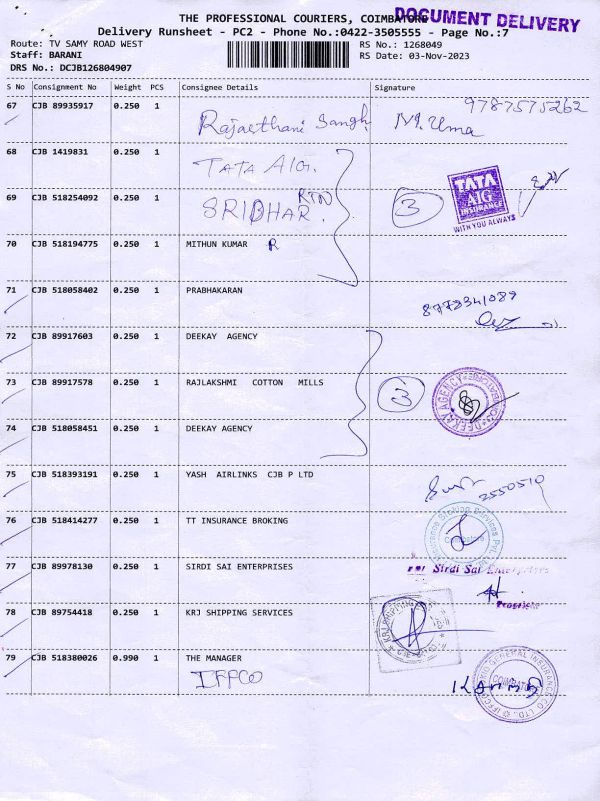 THE PROFESSIONAL COURIERS, COIMBATORE
DOCUMENT DELIVERY
Delivery Runsheet - PC2 - Phone No.:0422-3505555 - Page No.:7
Route: TV SAMY ROAD WEST
RS No.: 1268049
Staff: BARANI
RS Date: 03-Nov-2023
DRS No.: DCJB126804907
S No Consignment No Weight PCS Consignee Details Signature
67 CJB 89935917 0.250 1 Rajasthani Sangh M. Uma 9787575262
68 CJB 1419831 0.250 1 TATA AIG.
69 CJB 518254092 0.250 1 SRIDHAR. RTN 3
TATA
AIG
INSURANCE
WITH YOU ALWAYS
70 CJB 518194775 0.250 1 MITHUN KUMAR R
71 CJB 518058402 0.250 1 PRABHAKARAN
72 CJB 89917603 0.250 1 DEEKAY AGENCY
73 CJB 89917578 0.250 1 RAJLAKSHMI COTTON MILLS 3
DEEKAY AGENCY
74 CJB 518058451 0.250 1 DEEKAY AGENCY
75 CJB 518393191 0.250 1 YASH AIRLINKS CJB P LTD 2550510
76 CJB 518414277 0.250 1 TT INSURANCE BROKING
Insurance Broking Services Pvt.
Coimbatore
77 CJB 89978130 0.250 1 SIRDI SAI ENTERPRISES
Sirdi Sai Enterprises
78 CJB 89754418 0.250 1 KRJ SHIPPING SERVICES
79 CJB 518380026 0.990 1 THE MANAGER
IFFCO